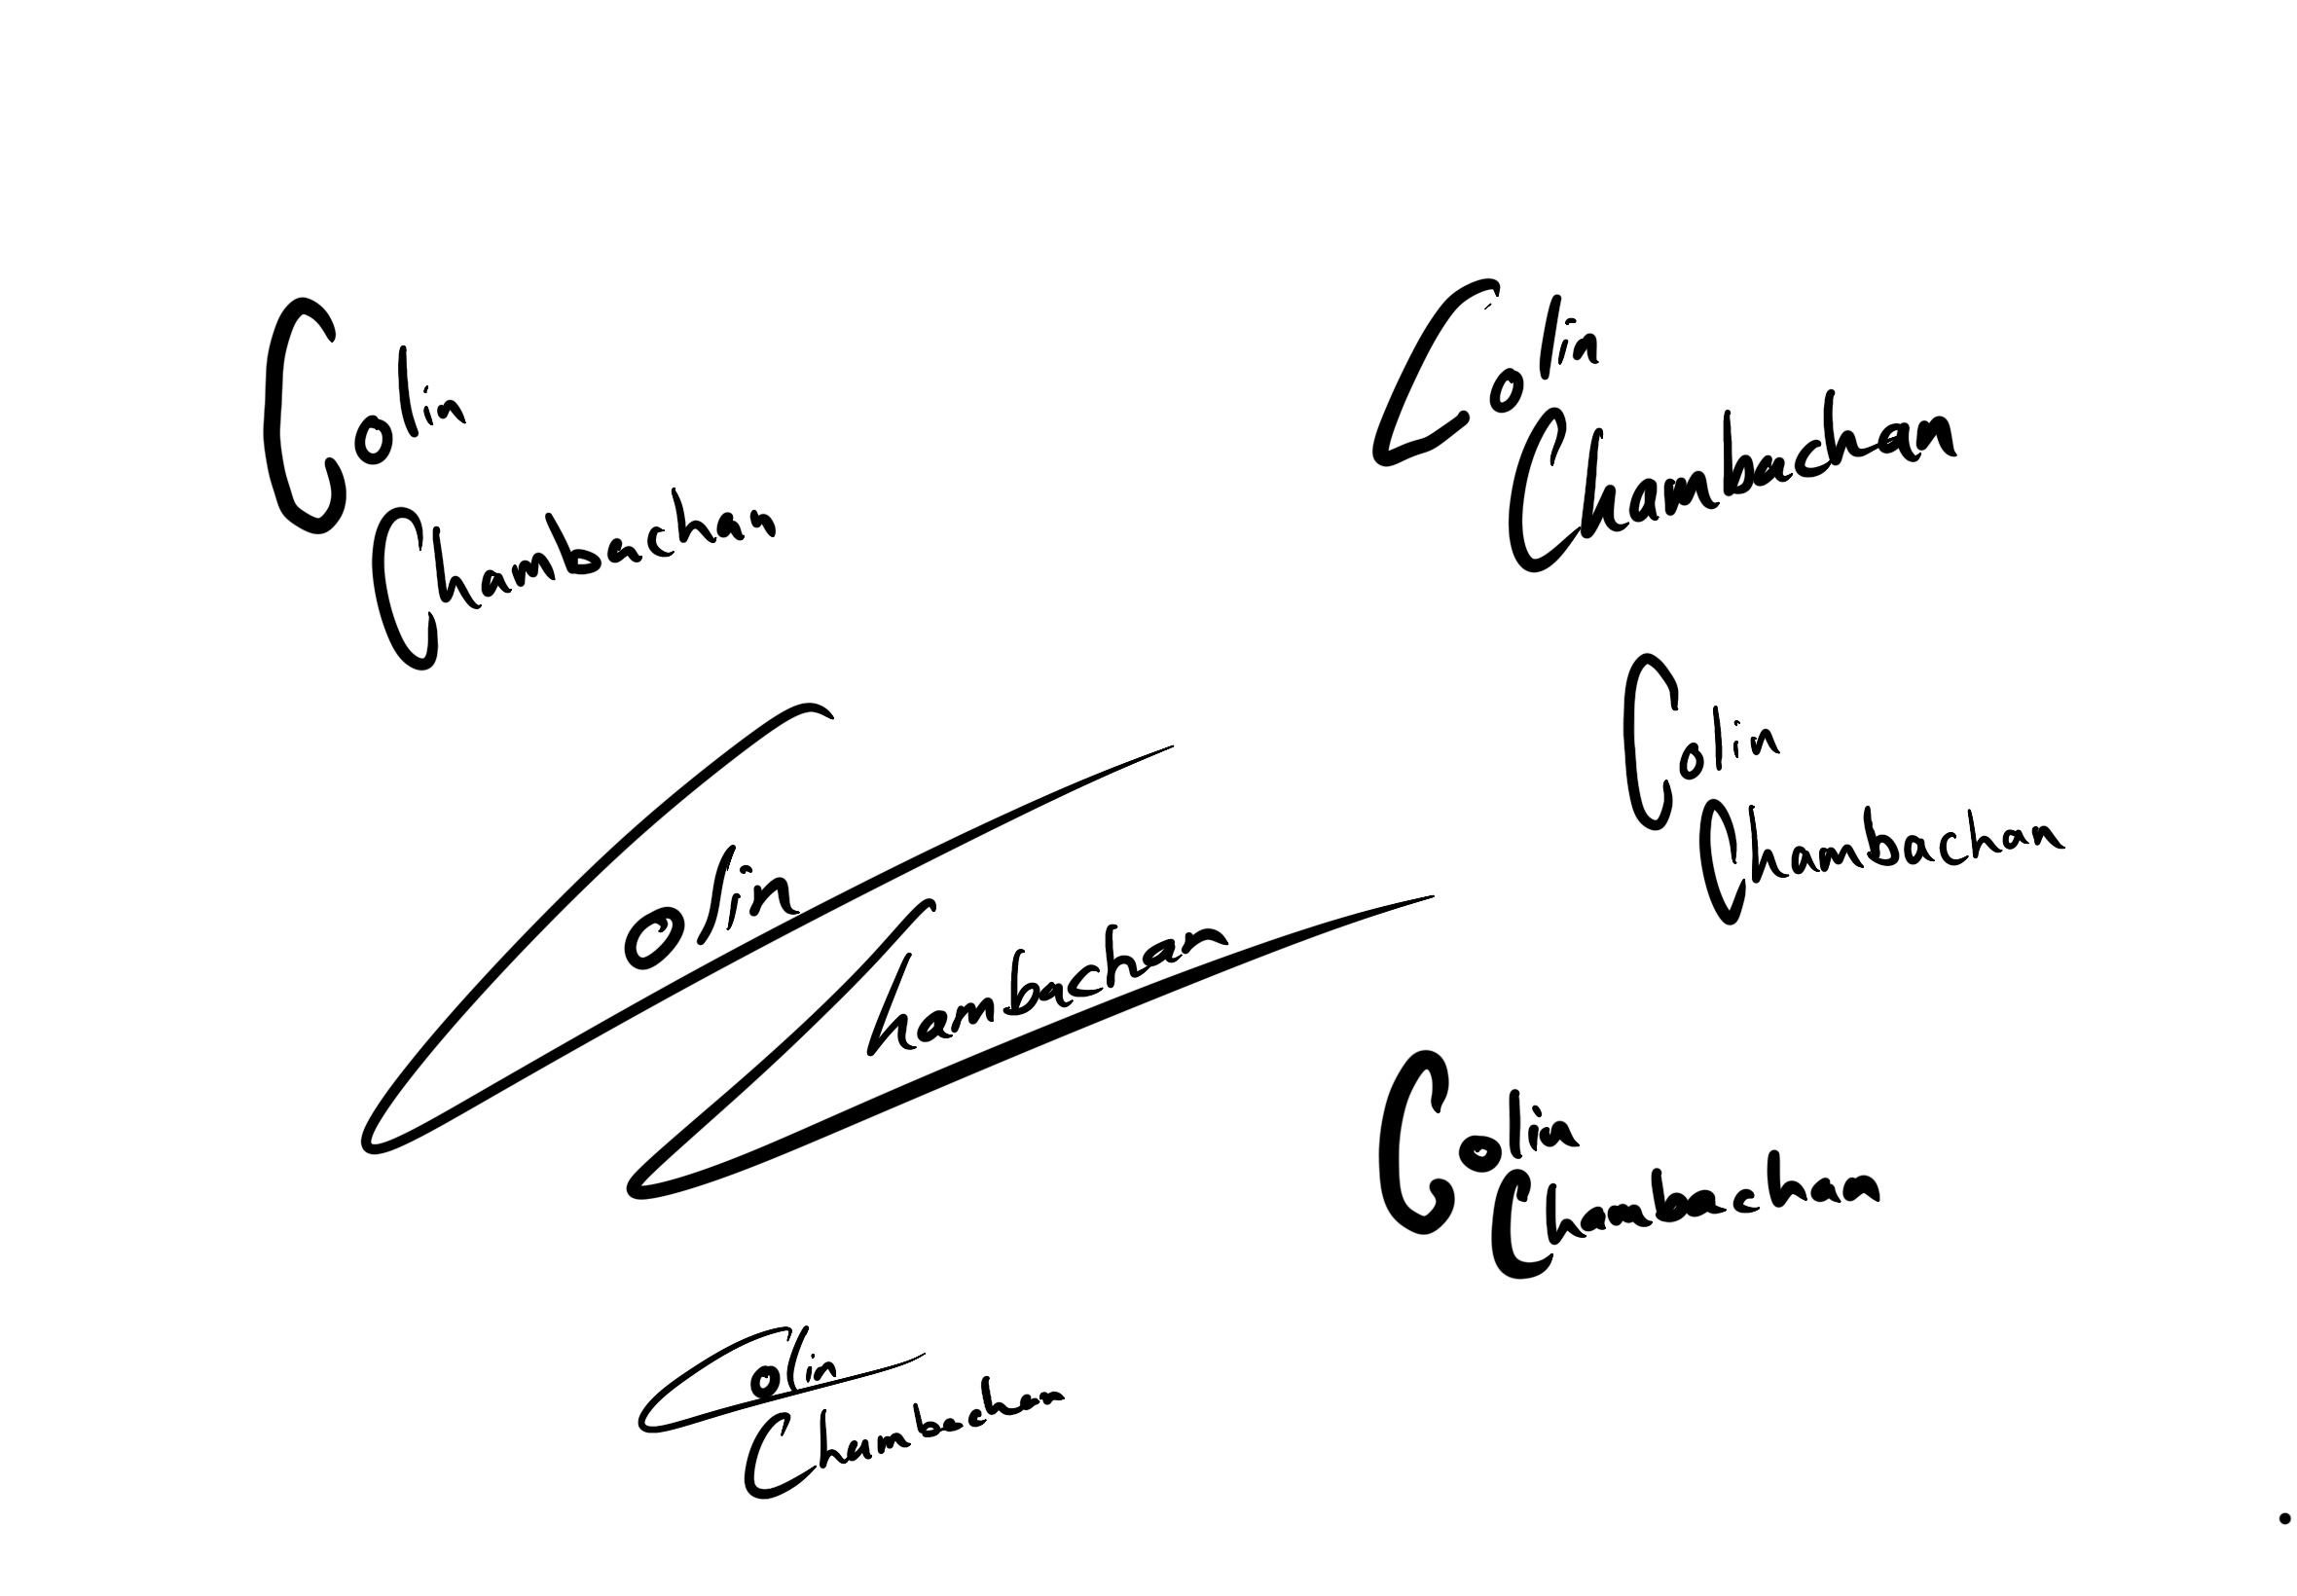 Colin
Chambachan
Colin
Chambachan
Colin
Chambachan
Colin
Chambachan
Colin
Chambachan
Colin
Chambachan